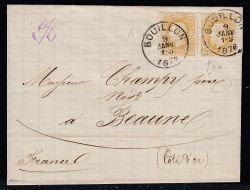 BOUILLON
9
JANV
1-S
1876
BOUILLON
JANV
1-S
1876
Monsieur Champy père
Nég.
à Beaune
France
(Côte d'or)